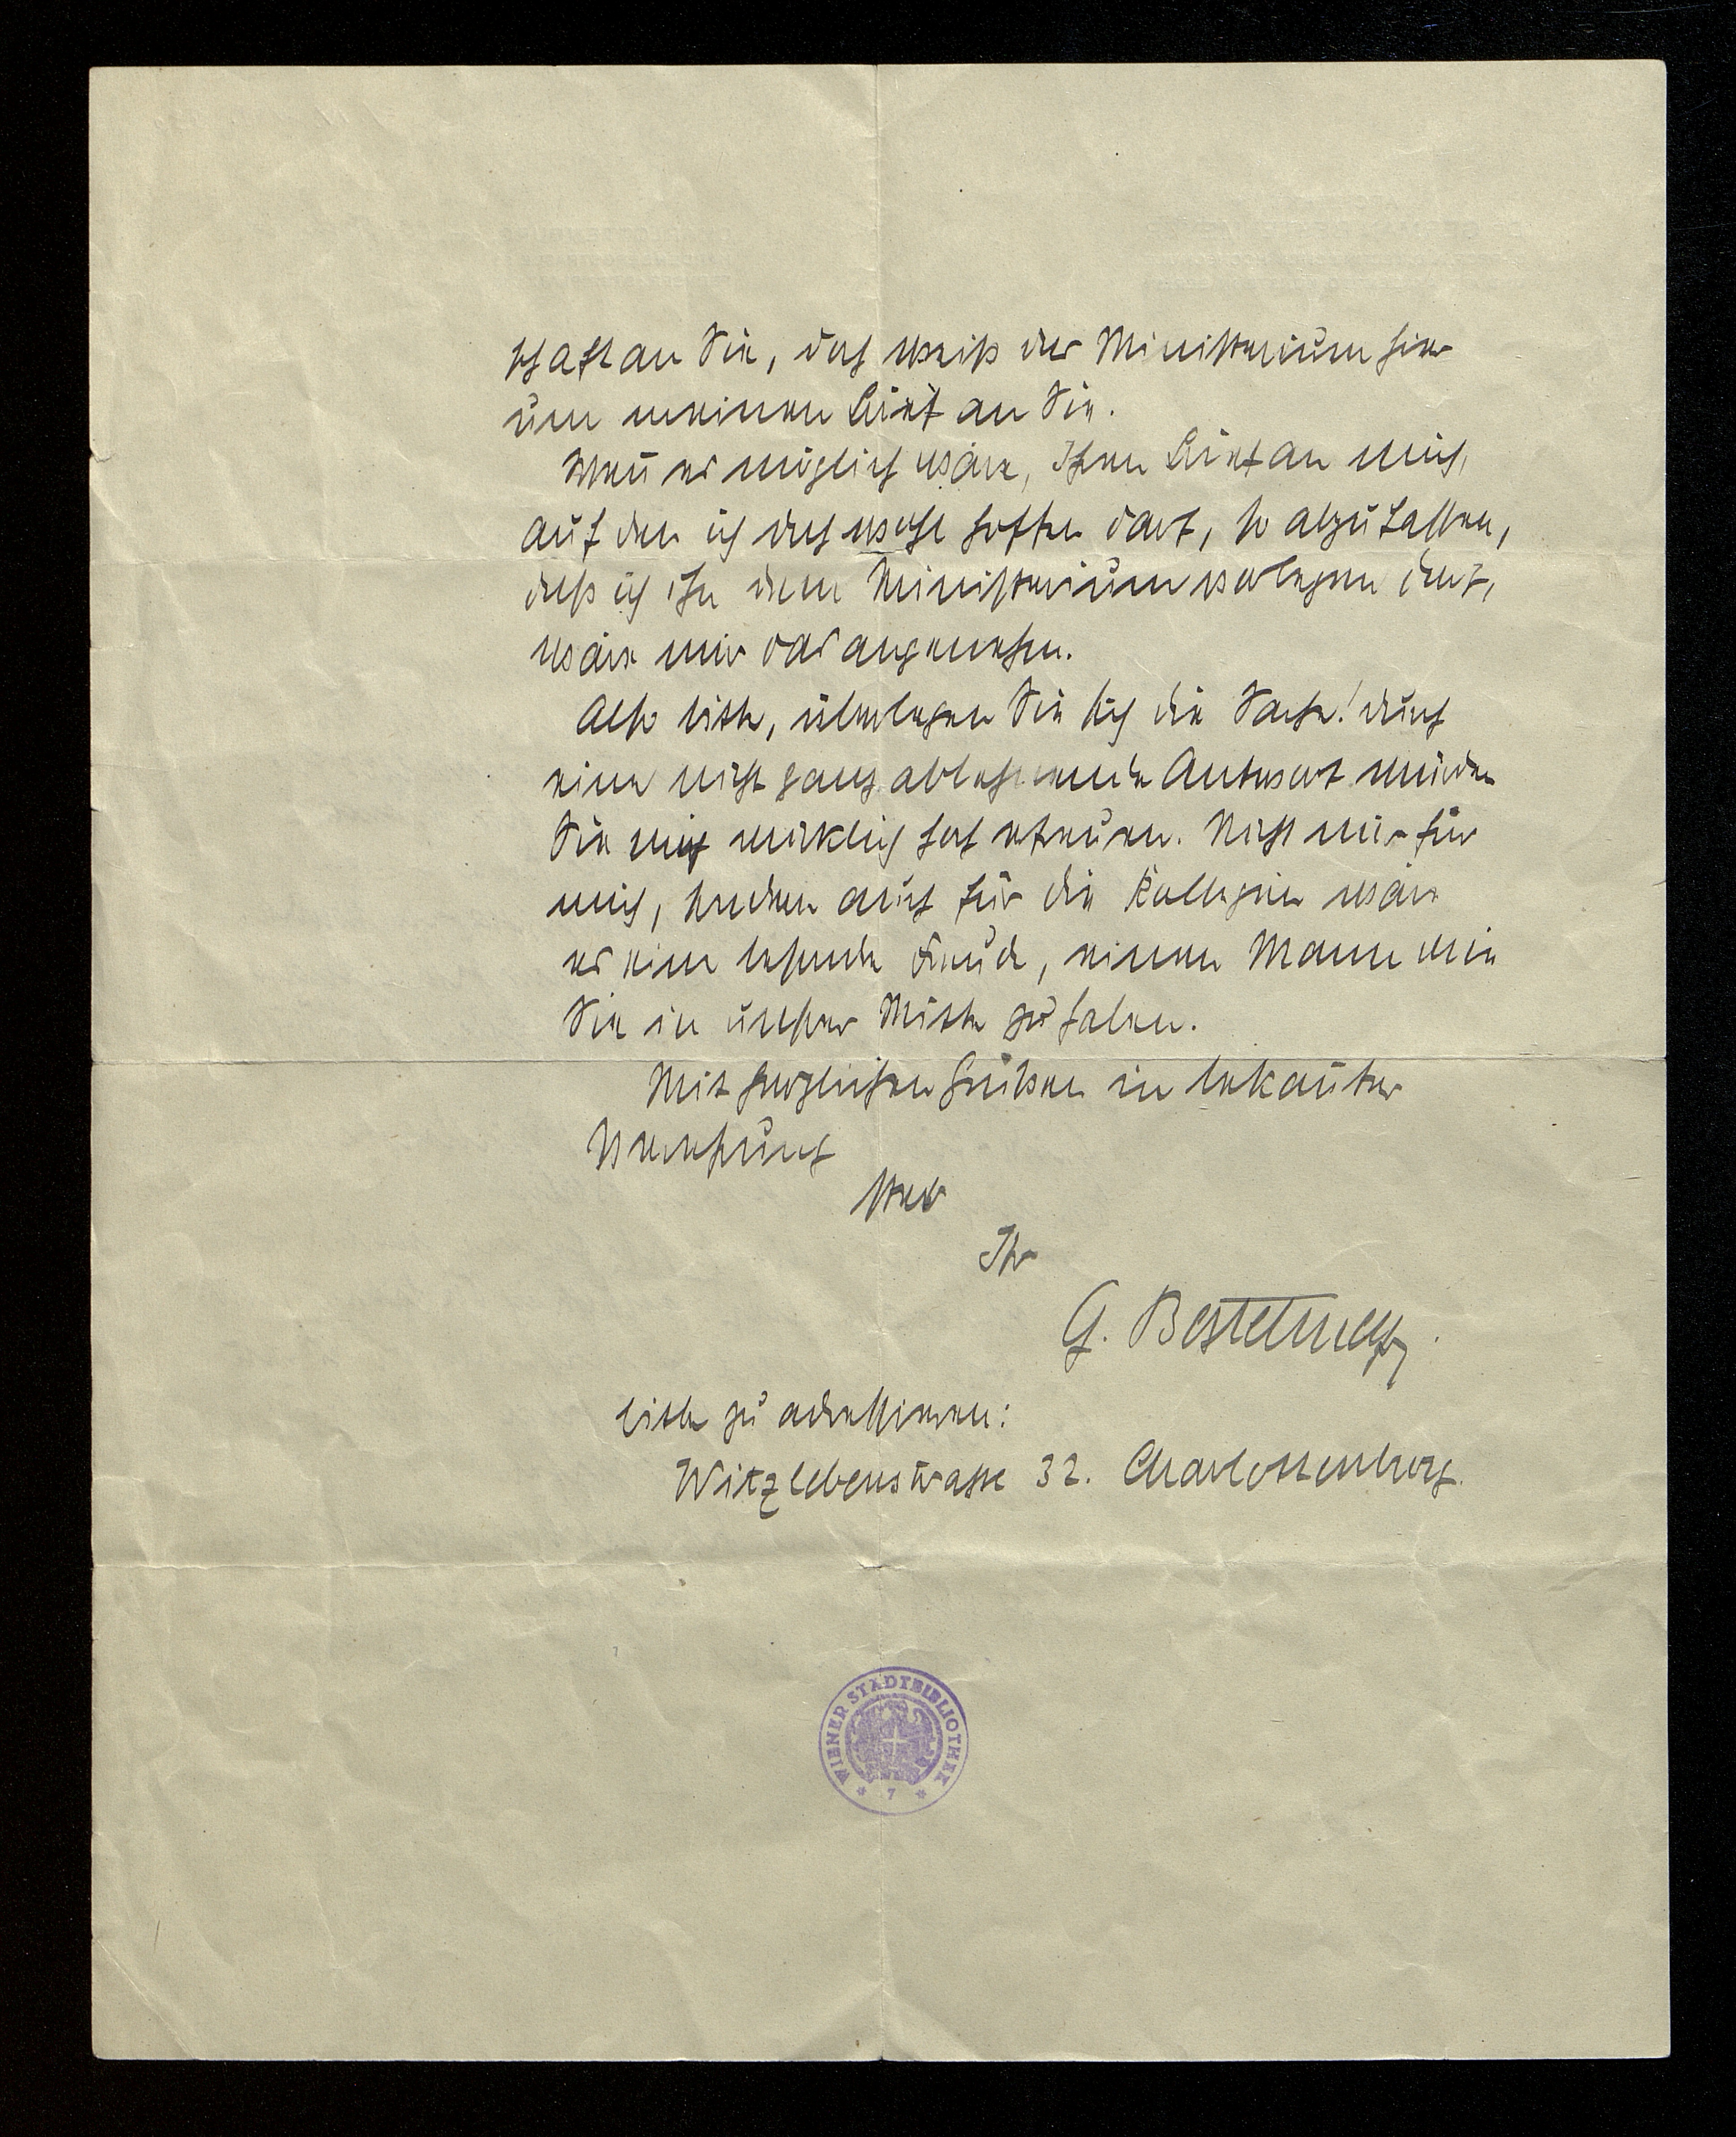 schaft an Sie, doch weiß das Ministerium hier
um meinen Brief an Sie.
Wenn es möglich wäre, Ihren Brief an mich,
auf den ich doch wohl hoffen darf, so abzufassen,
daß ich ihn dem Ministerium vorlegen darf,
wäre mir das angenehm.
Also bitte, überlegen Sie sich die Sache! durch
eine nicht ganz ablehnende Antwort würden
Sie mich wirklich hoch erfreuen. Nicht nur für
mich, sondern auch für die Kollegen wäre
es eine besondere Freude, einen Mann wie
Sie in unserer Mitte zu haben.
Mit herzlichen Grüßen in bekannter
Verehrung
stets
Ihr
G. Bestelmeyer.
bitte zu adressieren:
Witzlebenstrasse 32. Charlottenburg.
WIENER STADTBIBLIOTHEK
* 7 *